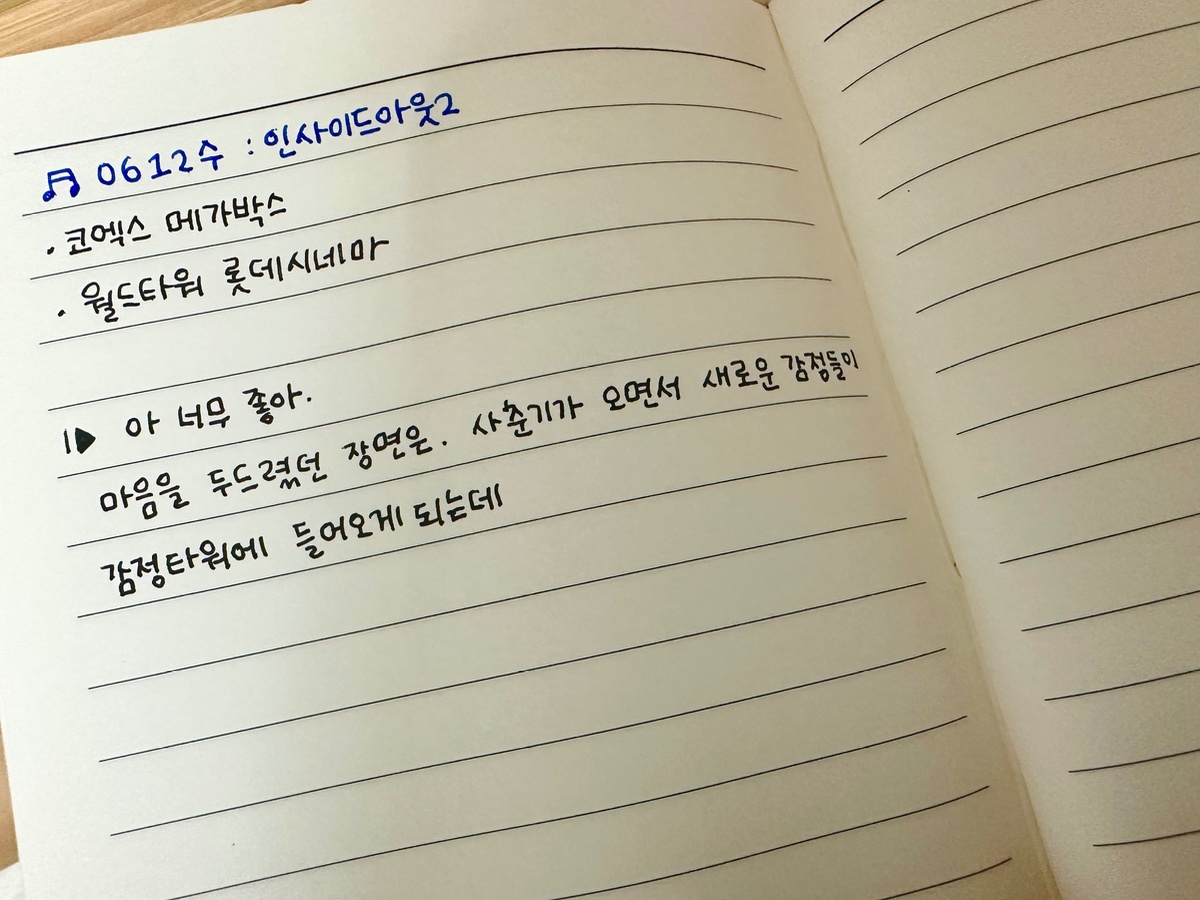 ♬ 0612수 : 인사이드아웃2
· 코엑스 메가박스
· 월드타워 롯데시네마
I▶ 아 너무 좋아.
마음을 두드렸던 장면은. 사춘기가 오면서 새로운 감정들이
감정타워에 들어오게 되는데